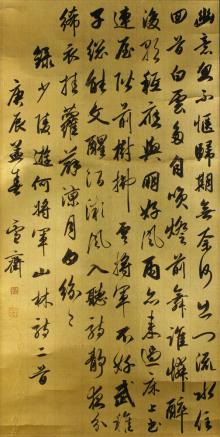 幽意忽不愜歸期無奈何出門流水住
回首白雲多自笑燈前舞誰憐醉
後歌祗應與朋好風雨亦來過床上書
連屋階前樹拂雲將軍不好武稚
子總能文醒酒微風入聽詩靜夜分
絺衣挂蘿薜涼月白紛〻
錄少陵遊何將軍山林詩二首
庚辰孟春 雪齋